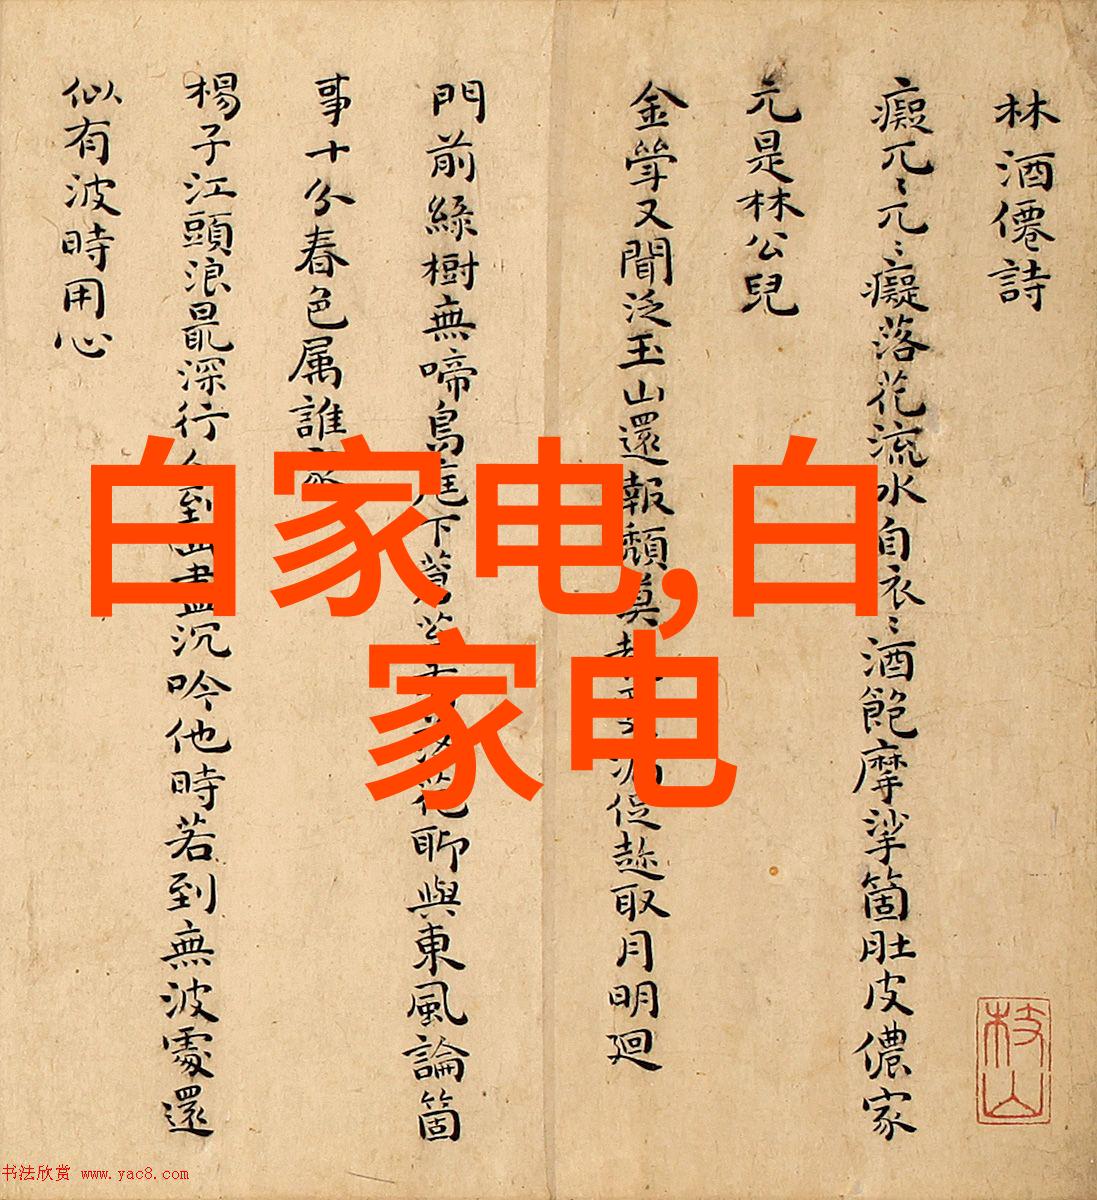 林酒僊詩
癡兀〻兀〻癡落花流水自衣〻酒飽摩挲箇肚皮儂家
元是林公兒
金斝又聞泛玉山還報頹莫漏促趂取月明廻
門前綠樹無啼鳥庭下落花聊與東風論箇
事十分春色属誰家
楊子江頭浪最深行人到盡沉吟他時若到無波處還
似有波時用心
枝山
白家电,白
家电
书法欣赏 www.yac8.com